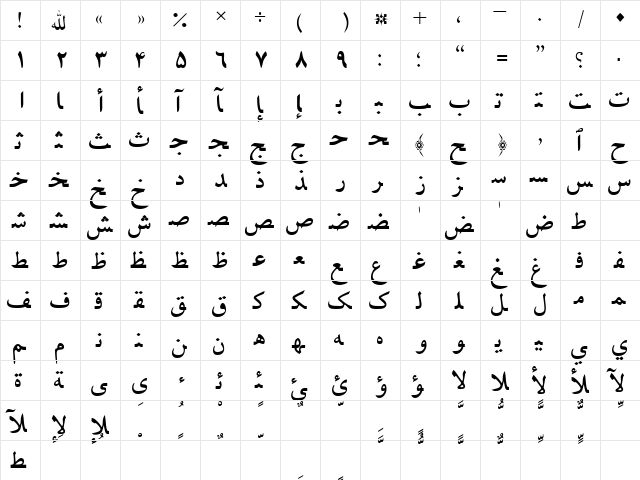 ! ﷲ « » ٪ × ÷ ( ) ※ + ، ¯ . / ◆
١ ٢ ٣ ۴ ۵ ٦ ٧ ٨ ٩ : ؛ “ = ” ؟ ٠
ا ﺎ أ ﺄ آ ﺂ إ ﺈ ﺑ ﺒ ﺐ ب ﺗ ﺘ ﺖ ت
ﺛ ﺜ ﺚ ث ﺟ ﺠ ﺞ ج ﺣ ﺤ ﴾ ﺢ ﴿ ٱ ح
ﺧ ﺨ ﺦ خ د ﺪ ذ ﺬ ر ﺮ ز ﺰ ﺳ ﺴ ﺲ س
ﺷ ﺸ ﺶ ش ﺻ ﺼ ﺺ ص ﺿ ﻀ ﺾ ض ط
ﻂ ط ظ ﻆ ﻈ ظ ﻋ ﻌ ﻊ ع ﻏ ﻐ ﻎ غ ﻓ ﻔ
ﻒ ف ﻗ ﻘ ﻖ ق ﻛ ﻜ ﻚ ك ﻟ ﻠ ﻞ ل ﻣ ﻤ
ﻢ م ﻧ ﻨ ﻦ ن ﻫ ﻬ ﻪ ه و ﻮ ﻳ ﻴ ﻲ ي
ة ﺔ ﻰ ى ء ﺋ ﺌ ﺊ ئ ؤ ﺆ ﻻ ﻼ ﻷ ﻸ ﻵ
ﻶ ﻹ ﻺ
ﻂ